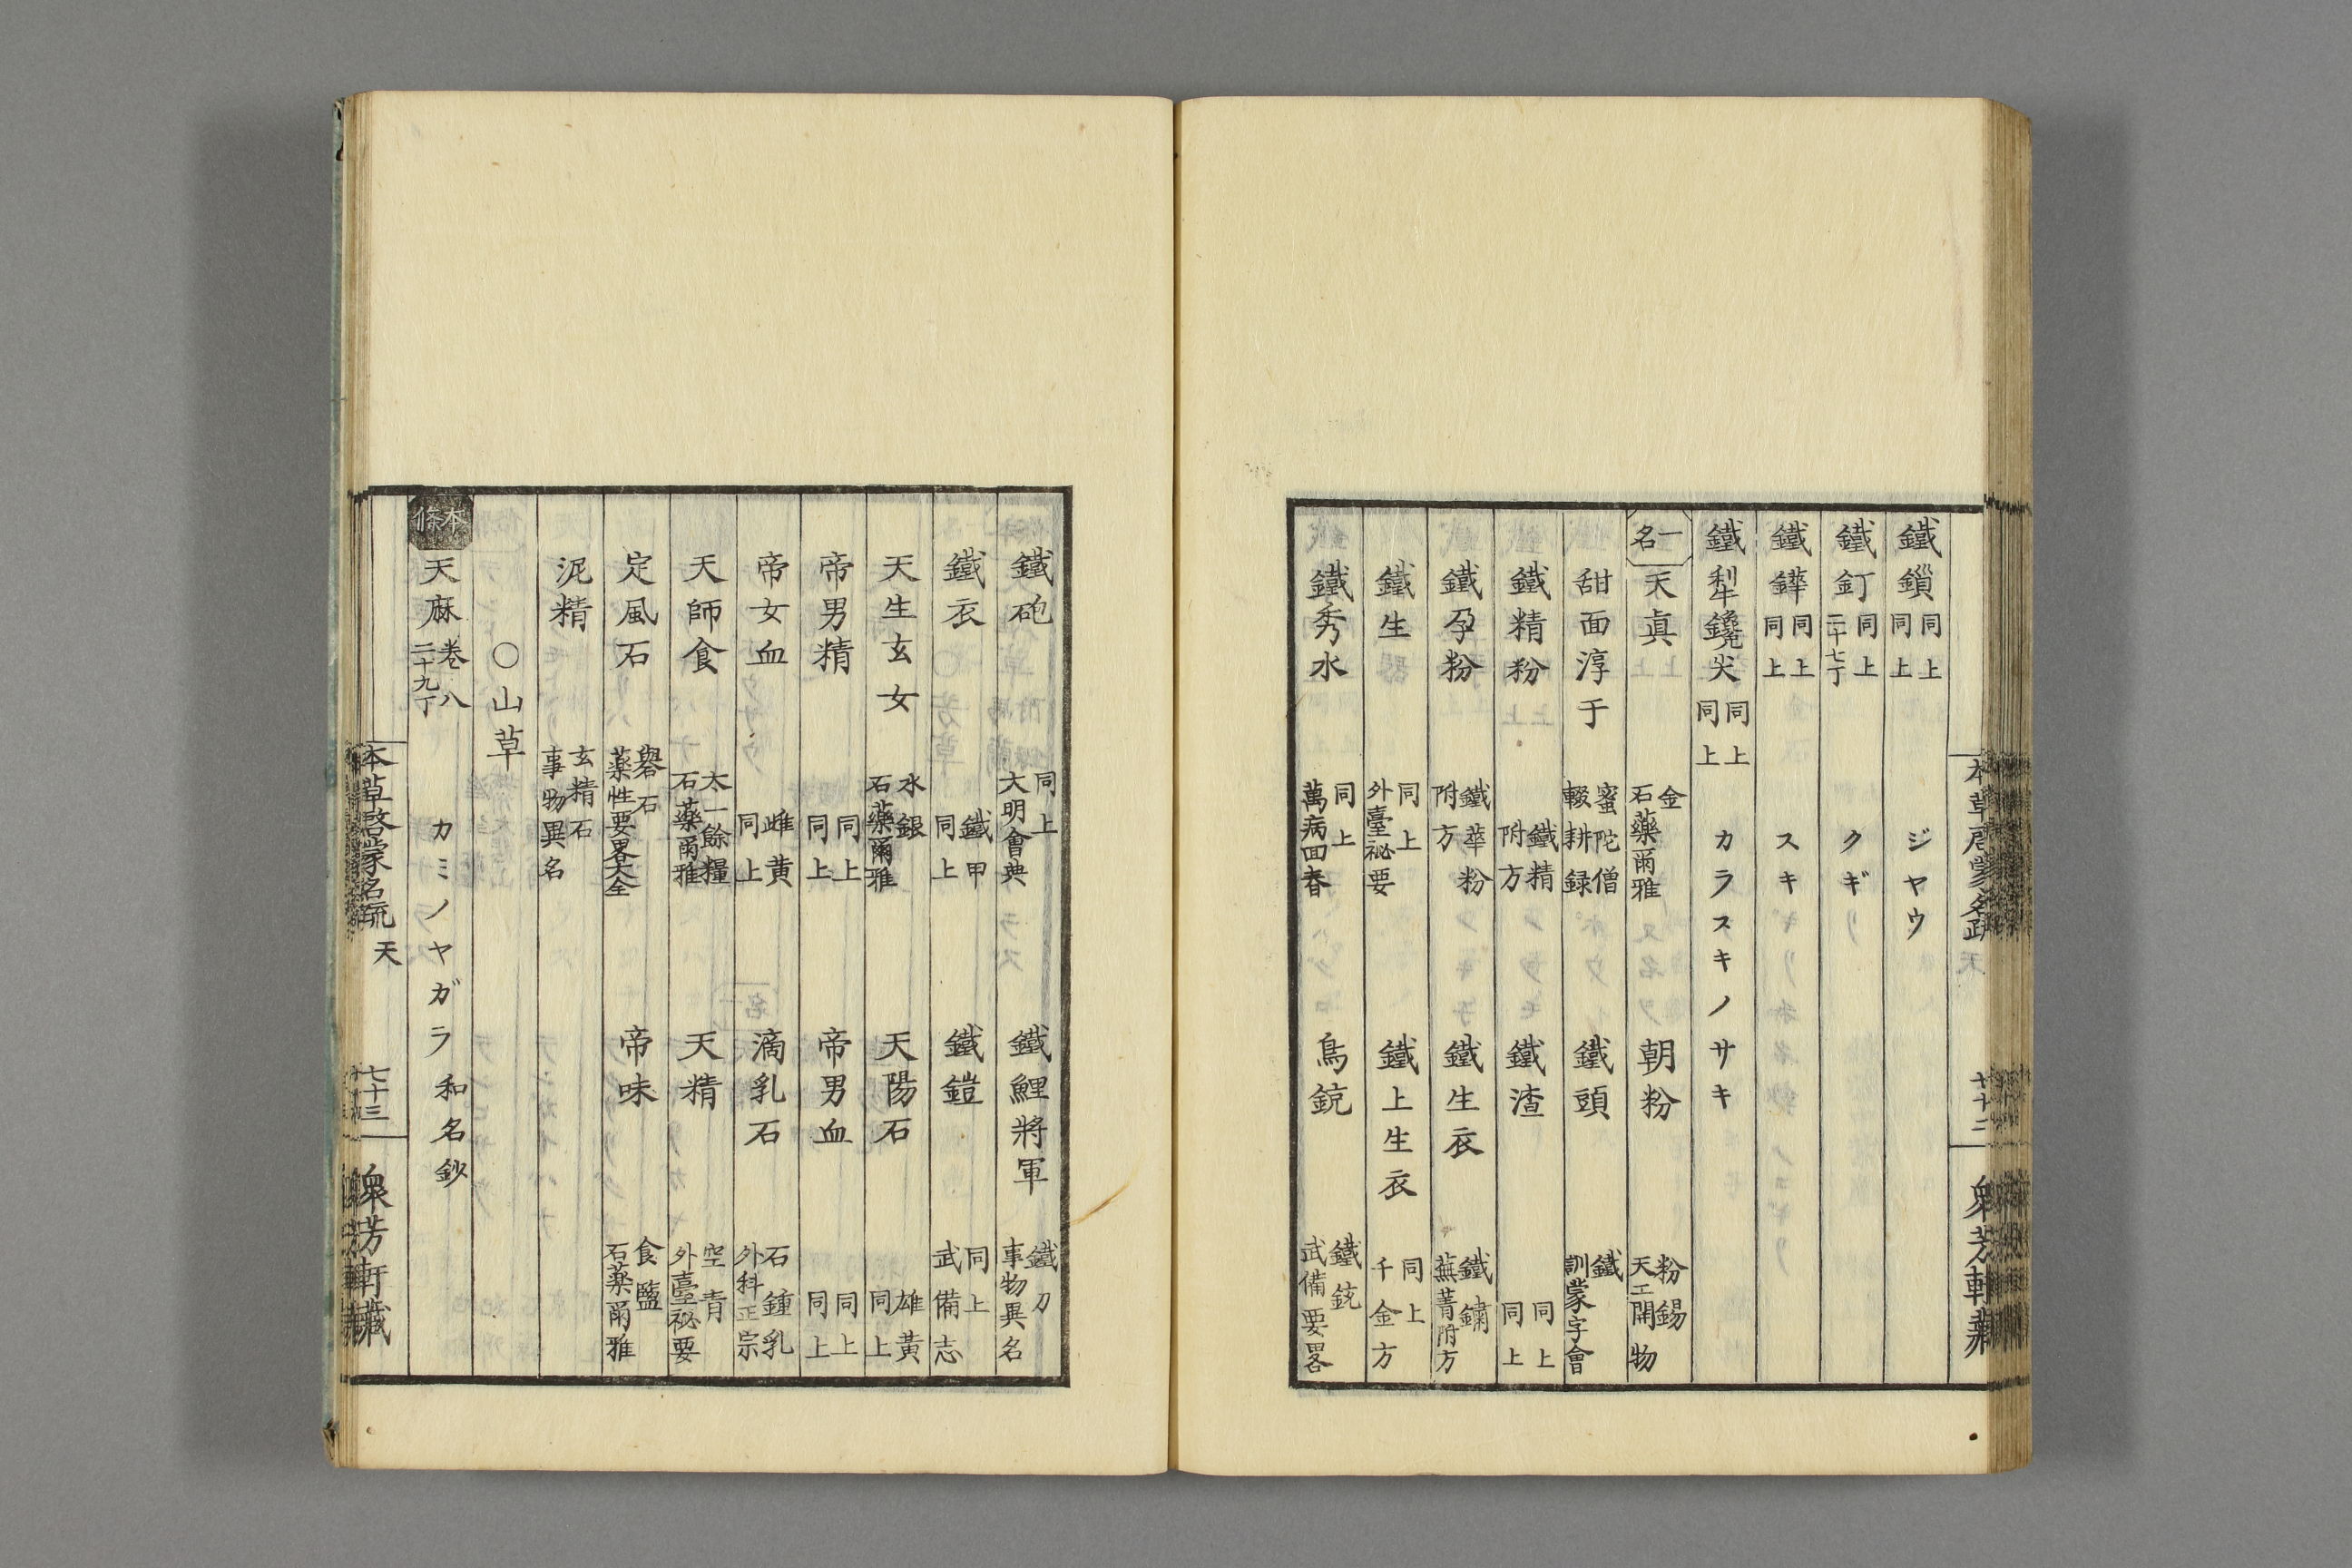 鐵鎖 同上 同上 ジヤウ
鐵釘 同上 二十七丁 クギ
鐵鏵 同上 同上 スキ
鐵犁鑱尖 同上 同上 カラスキノサキ
一名 天眞 金 石藥爾雅 朝粉 粉錫 天工開物
甜面淳于 蜜陀僧 輟耕録 鐵頭 鐵 訓蒙字會
鐵精粉 鐵精 附方 鐵渣 同上 同上
鐵孕粉 鐵華粉 附方 鐵生衣 鐵鏽 蕪菁附方
鐵生 同上 外臺祕要 鐵上生衣 同上 千金方
鐵秀水 同上 萬病回春 鳥銃 鐵銃 武備要畧
鐵砲 同上 大明會典 鐵鯉將軍 鐵刀 事物異名
鐵衣 鐵甲 同上 鐵鎧 同上 武備志
天生玄女 水銀 石藥爾雅 天陽石 雄黃 同上
帝男精 同上 同上 帝男血 同上 同上
帝女血 雌黄 同上 滴乳石 石鍾乳 外科正宗
天師食 太一餘糧 石藥爾雅 天精 空青 外臺祕要
定風石 礜石 藥性要畧大全 帝味 食鹽 石藥爾雅
泥精 玄精石 事物異名
〇山草
本條 天麻 卷八 二十九丁 カミノヤガラ 和名鈔
本草啓蒙名疏 天 七十三 衆芳軒藏